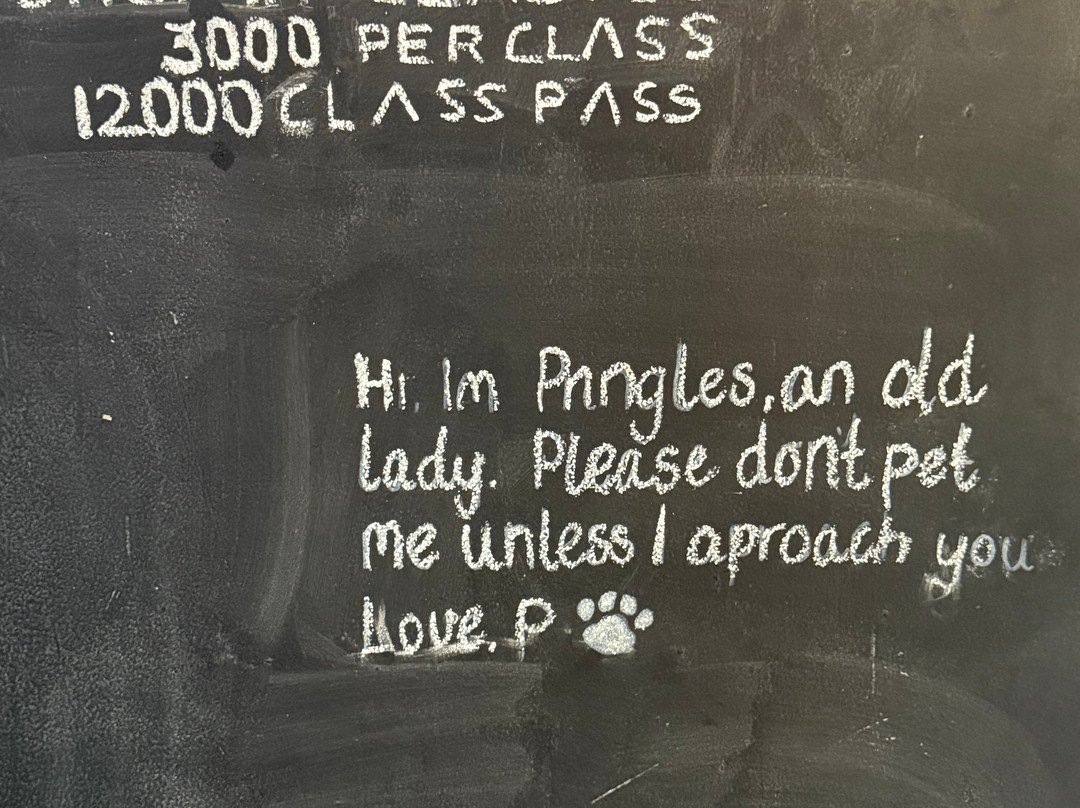 3000 PER CLASS
12000 CLASS PASS
Hi, Im Pringles, an old
lady. Please don't pet
me unless I aproach you
Love, P